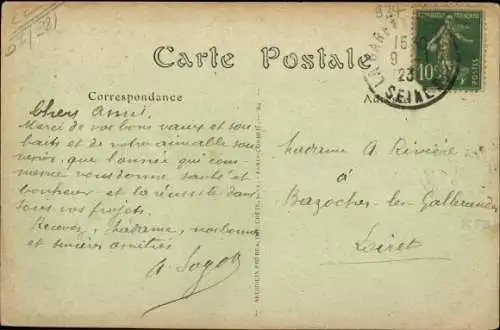 Carte Postale
Correspondance
Chers Amis
Merci de vos bons vœux et sou
haits et de votre aimable sou
venir, que l'année qui com-
mence vous donne santé et
bonheur et la réussite dans
tous vos projets.
Recevez, Madame, nos bonnes
et sincères amitiés
Madame A. Rivière
à
Bazoches-les-Gallerandes
Loiret
REPUBLIQUE FRANÇAISE
10
POSTES
15
9
23
SEINE